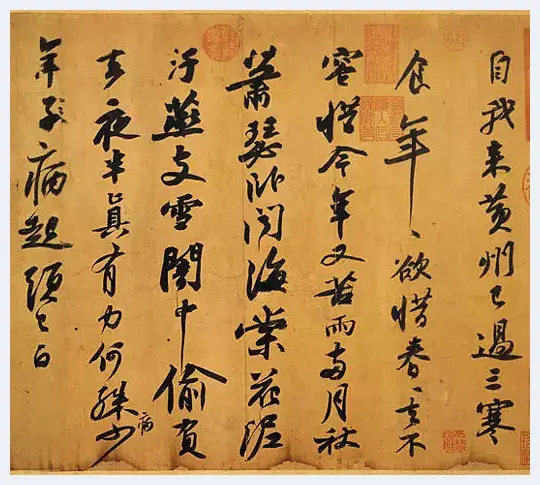 自我來黃州已過三寒
食年、欲惜春、去不
容惜今年又苦雨兩月秋
蕭瑟臥聞海棠花泥
汙燕支雪闇中偷負
去夜半真有力何殊少
病
年子病起頭已白